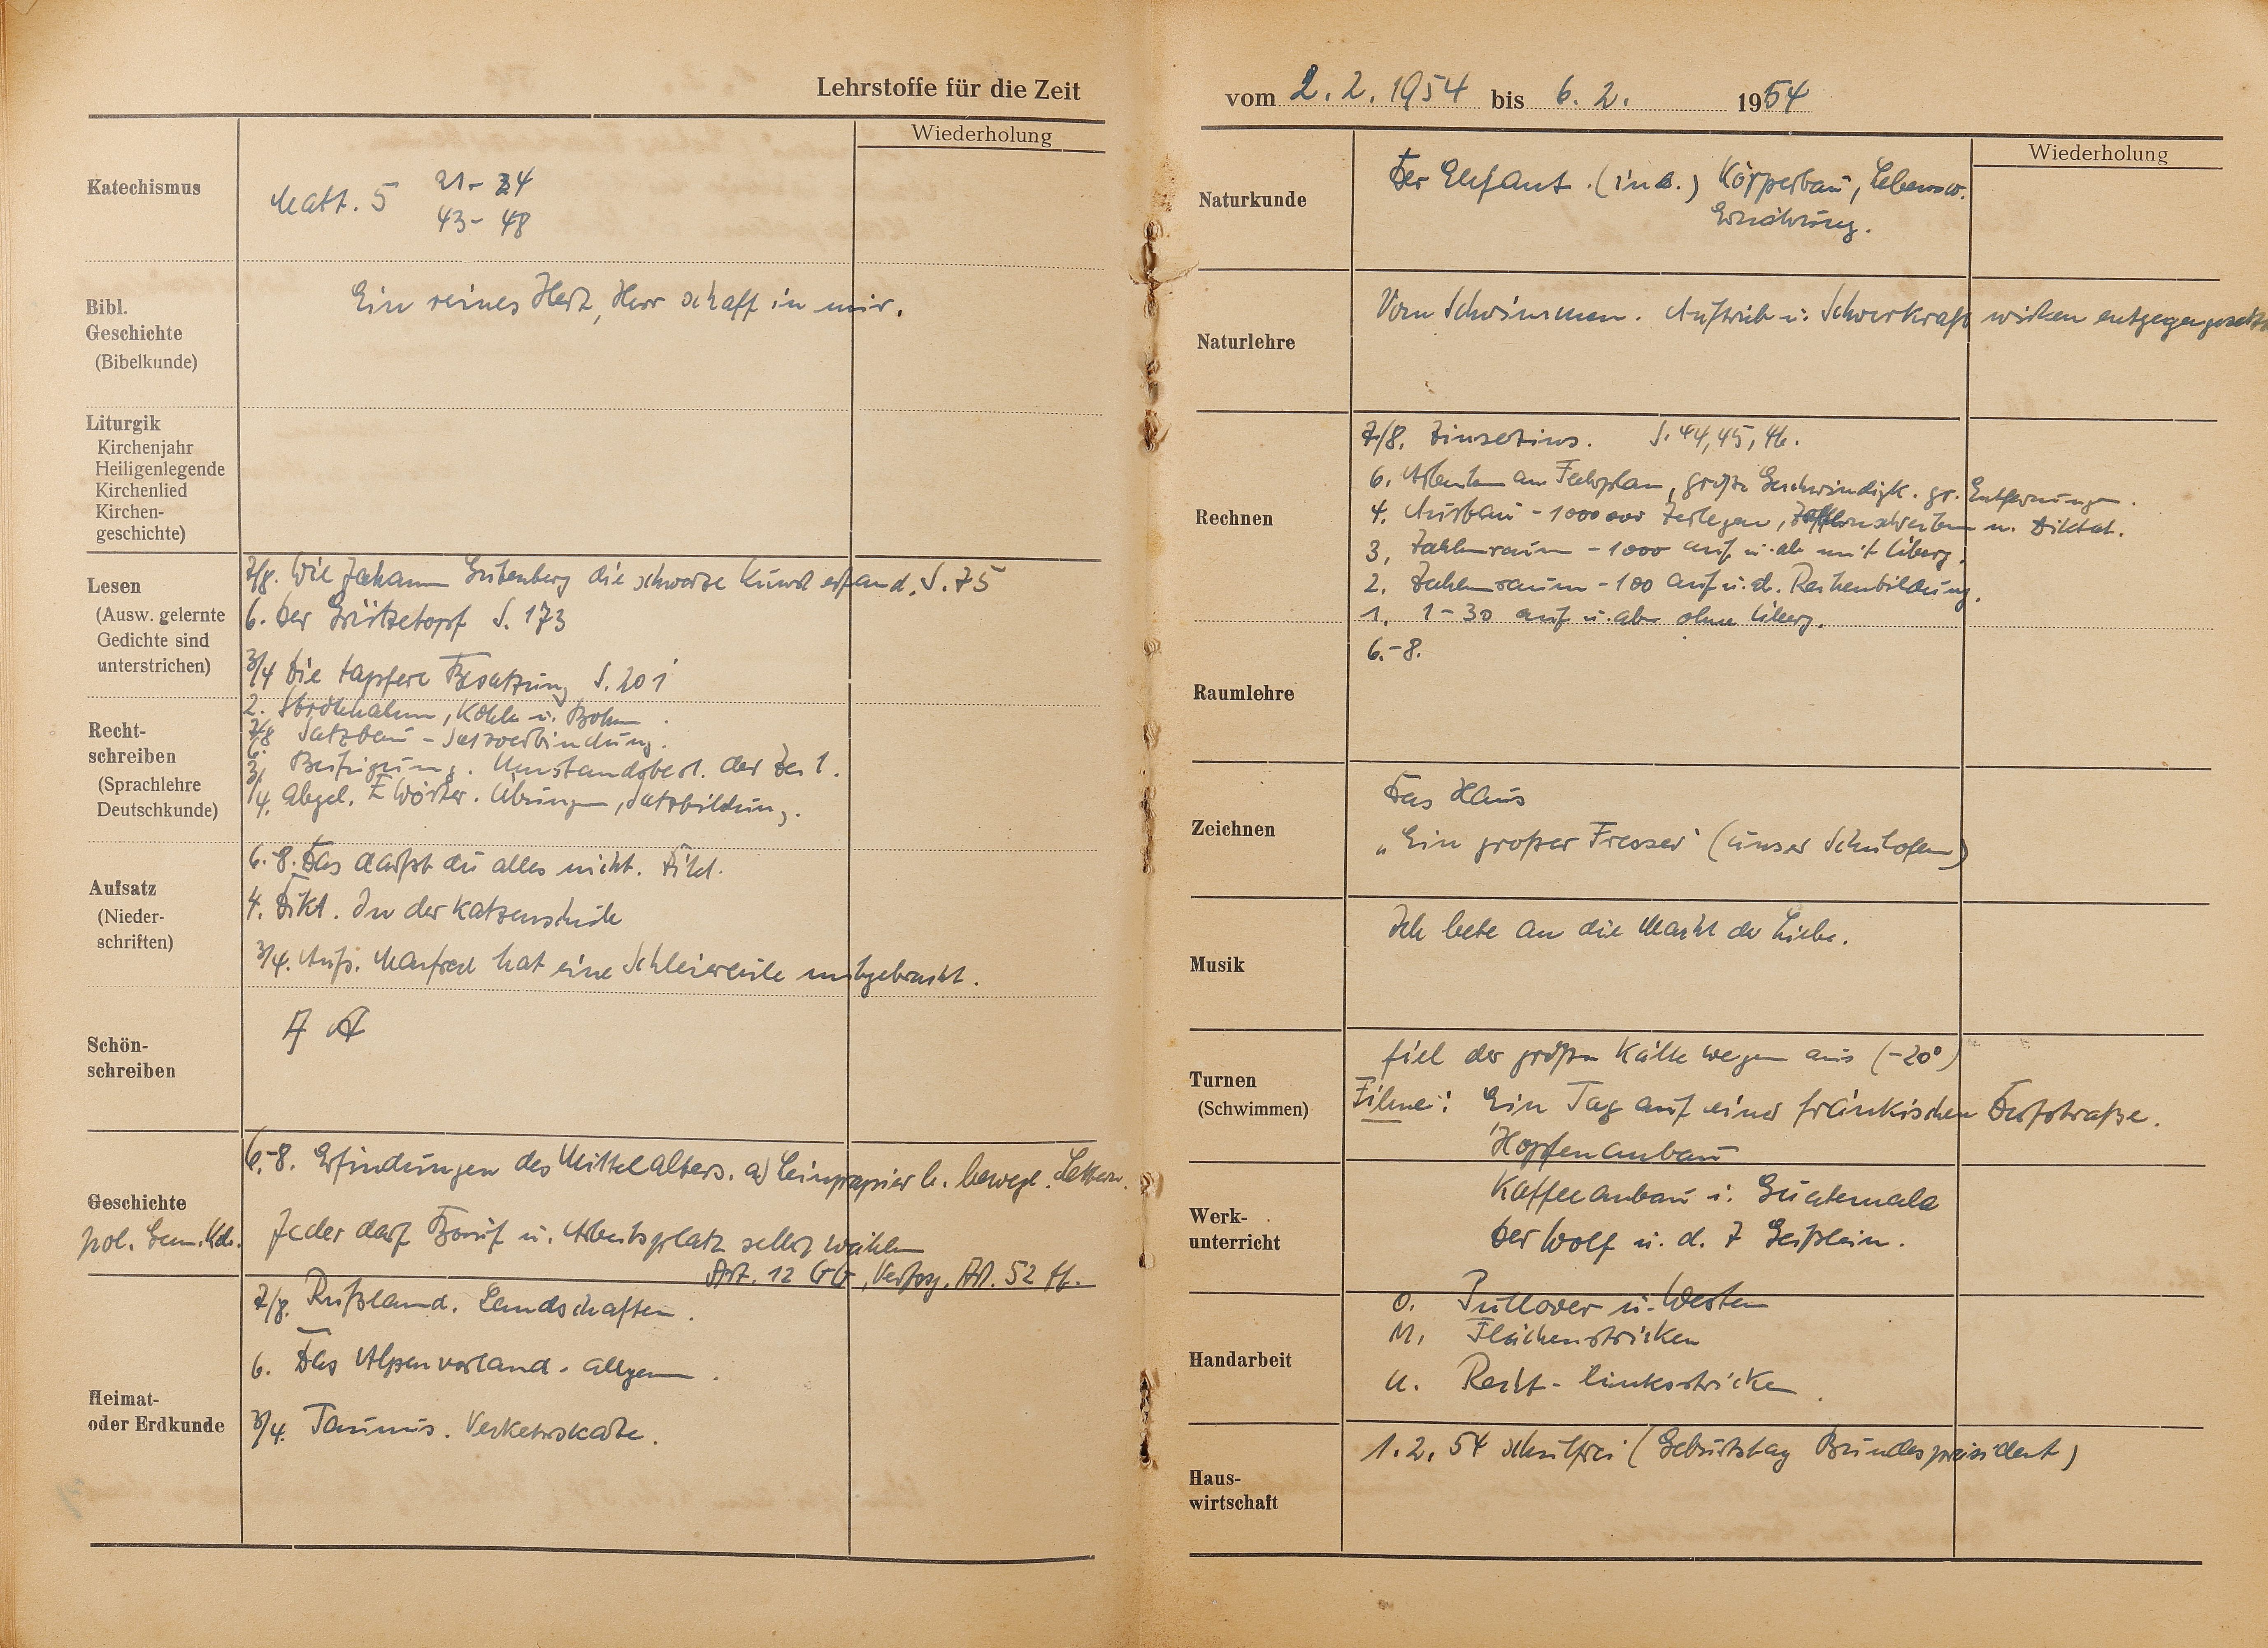 Lehrstoffe für die Zeit
Wiederholung
Katechismus
Matt. 5 21-24
43-48
Bibl.
Geschichte
(Bibelkunde)
Ein reines Herz, Herr schaff in mir.
Liturgik
Kirchenjahr
Heiligenlegende
Kirchenlied
Kirchen-
geschichte)
Lesen
(Ausw. gelernte
Gedichte sind
unterstrichen)
7/8. Wie Johann Gutenberg die schwarze Kunst erfand. S. 75
6. Der Grützetopf S. 173
3/4 Die tapfere Besatzung S. 201
2. Strohhalm, Kohle u. Bohne.
Recht-
schreiben
(Sprachlehre
Deutschkunde)
7/8 Satzbau - Satzverbindung.
6. Beifügung. Umstandsbest. der Zeit.
3/4. Abgel. Z Wörter. Übungen, Satzbildung.
Aufsatz
(Nieder-
schriften)
6.-8. Das darfst du alles nicht. Dikt.
4. Dikt. In der Katzenschule
3/4. Aufs. Manfred hat eine Schleiereule mitgebracht.
Schön-
schreiben
Geschichte
pol. Gem. Kde.
6.-8. Erfindungen des Mittelalters. a) Leinpapier b. bewegl. Lettern.
Jeder darf Beruf u. Arbeitsplatz selbst wählen
Art. 12 GG, Verfssg. Art. 52 ff.
Heimat-
oder Erdkunde
7/8. Rußland. Landschaften.
6. Das Alpenvorland. allgem.
3/4. Taunus. Verkehrskarte.
vom 2. 2. 1954 bis 6. 2. 1954
Wiederholung
Naturkunde
Der Elefant. (ind.) Körperbau, Lebensw.
Ernährung.
Naturlehre
Vom Schwimmen. Auftrieb u. Schwerkraft wirken entgegengesetzt
Rechnen
7/8. Zinseszins. S. 44, 45, 46.
6. Arbeiten am Fahrplan, große Geschwindigk. gr. Entfernungen.
4. Ausbau - 1000000 Zerlegen, n. Diktat.
3. Zahlenraum - 1000 auf u. ab mit Überg.
2. Zahlenraum - 100 auf u. ab. Reihenbildung.
1. 1-30 auf u. ab ohne Überg.
Raumlehre
6.-8.
Zeichnen
Das Haus
„Ein großer Fresser“ (unser Schulofen)
Musik
Ich bete an die Macht der Liebe.
Turnen
(Schwimmen)
fiel der großen Kälte wegen aus (-20°)
Filme: Ein Tag auf einer fränkischen Dorfstraße.
Hopfenanbau
Werk-
unterricht
Kaffeeanbau i. Guatemala
Der Wolf u. d. 7 Geißlein.
Handarbeit
O. Pullover u. Westen
M. Flächenstricken
U. Recht- linksstricken.
Haus-
wirtschaft
1. 2. 54 schulfrei (Geburtstag Bundespräsident)